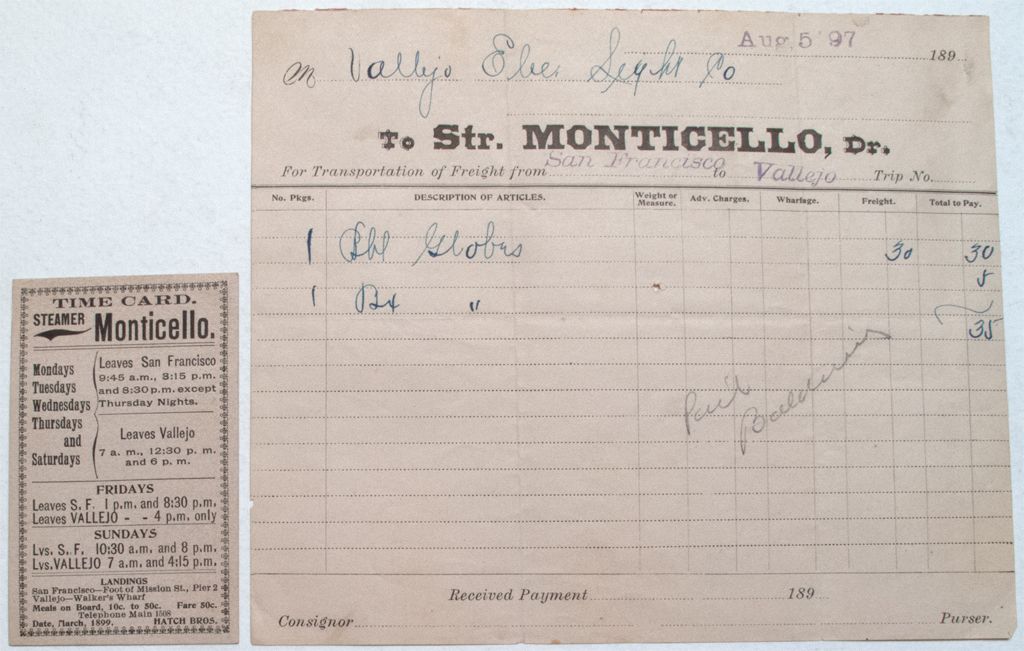 TIME CARD.
STEAMER Monticello.
Mondays
Tuesdays
Wednesdays
Thursdays
and
Saturdays
Leaves San Francisco
9:45 a.m., 3:15 p.m.
and 8:30 p.m. except
Thursday Nights.
Leaves Vallejo
7 a. m., 12:30 p. m.
and 6 p. m.
FRIDAYS
Leaves S. F. 1 p.m. and 8:30 p.m.
Leaves VALLEJO - - 4 p.m. only
SUNDAYS
Lvs. S. F. 10:30 a.m. and 8 p.m.
Lvs. VALLEJO 7 a.m. and 4:15 p.m.
LANDINGS
San Francisco—Foot of Mission St., Pier 2
Vallejo—Walker's Wharf
Meals on Board, 10c. to 50c. Fare 50c.
Telephone Main 1508
Date, March, 1899. HATCH BROS.
Aug 5 '97 189
M Vallejo Elec Light Co
To Str. MONTICELLO, Dr.
For Transportation of Freight from San Francisco to Vallejo Trip No.
No. Pkgs. DESCRIPTION OF ARTICLES. Weight or Measure. Adv. Charges. Wharfage. Freight. Total to Pay.
1 Bbl Globes 30 30
1 Bx " 5
35
Paid
Received Payment 189
Consignor Purser.